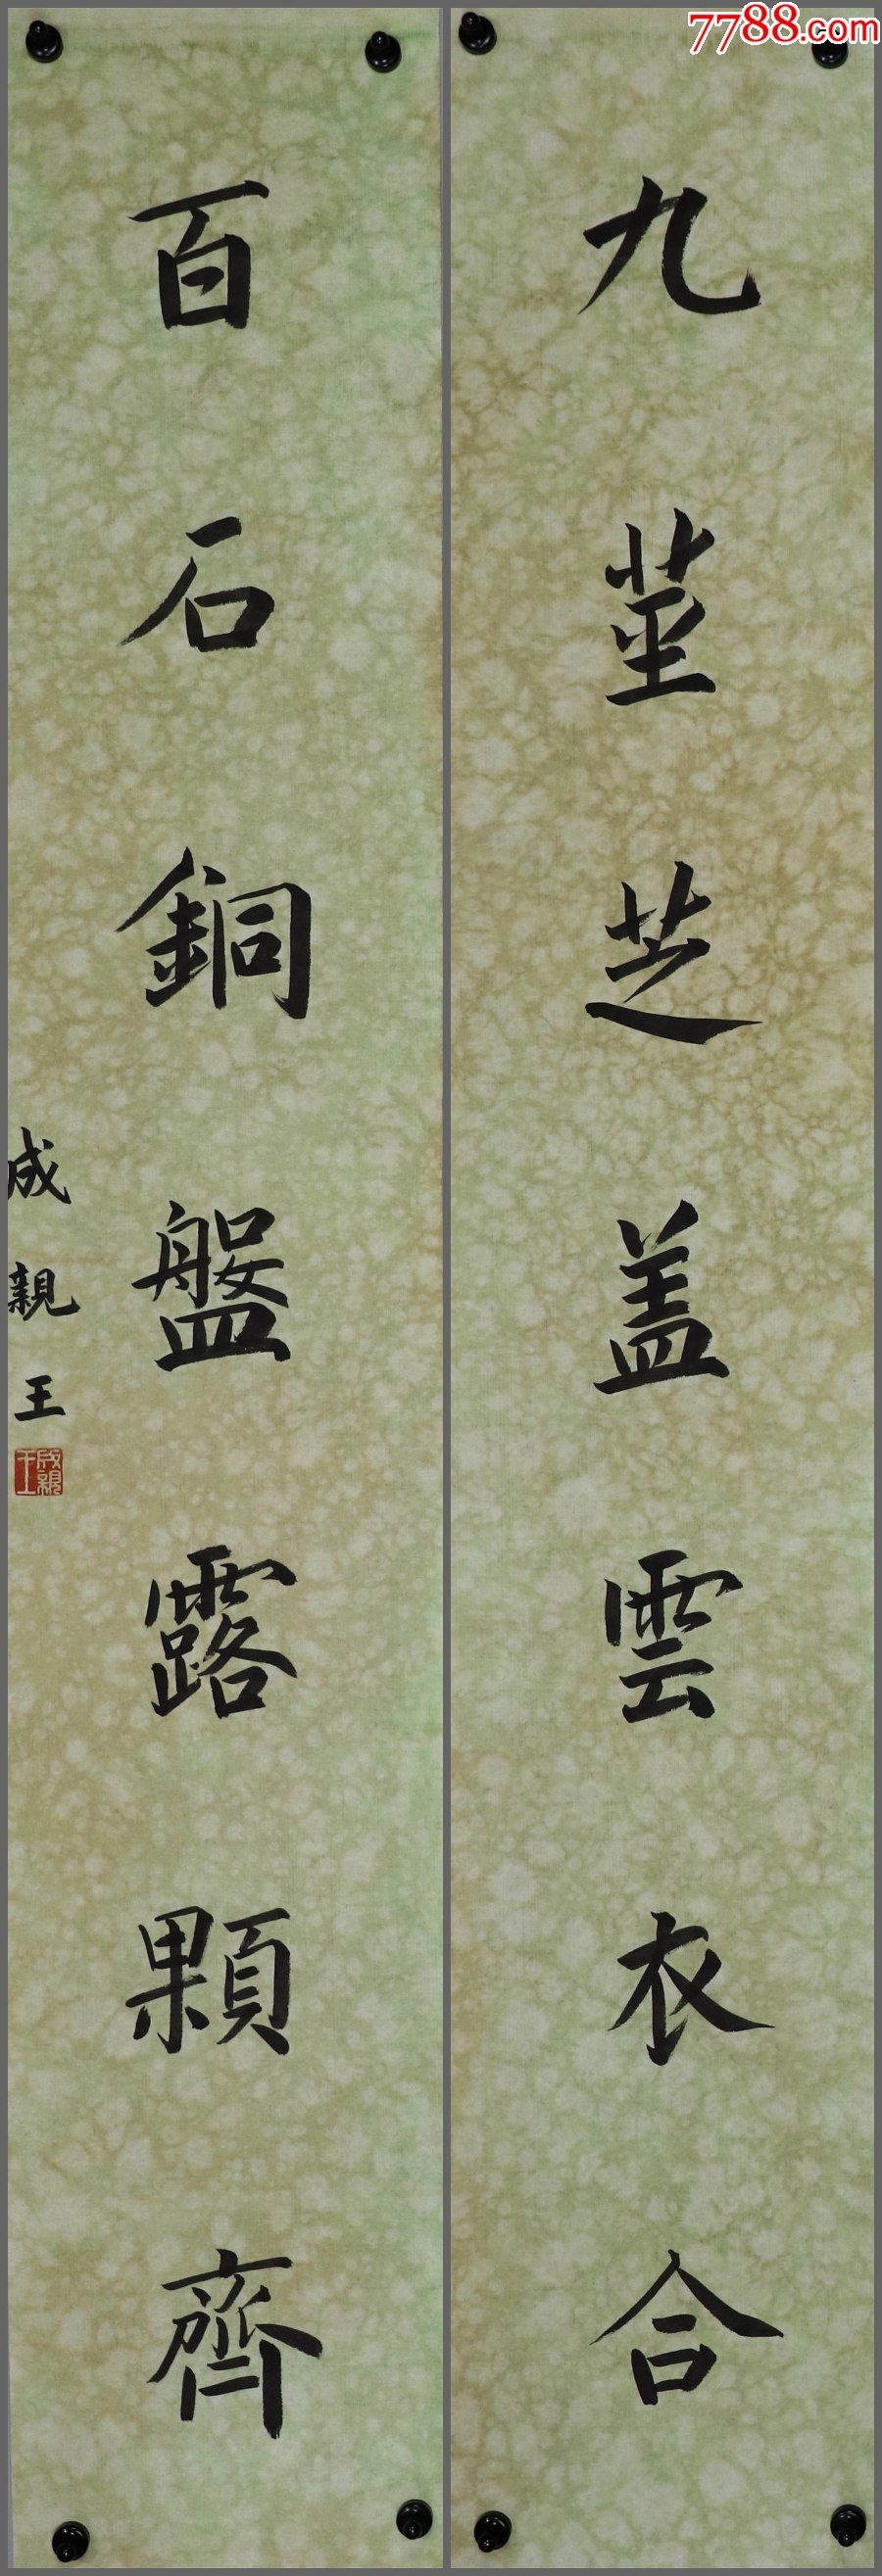 7788.com
九茎芝盖雲衣合
百石銅盤露顆齊
成親王
成親王